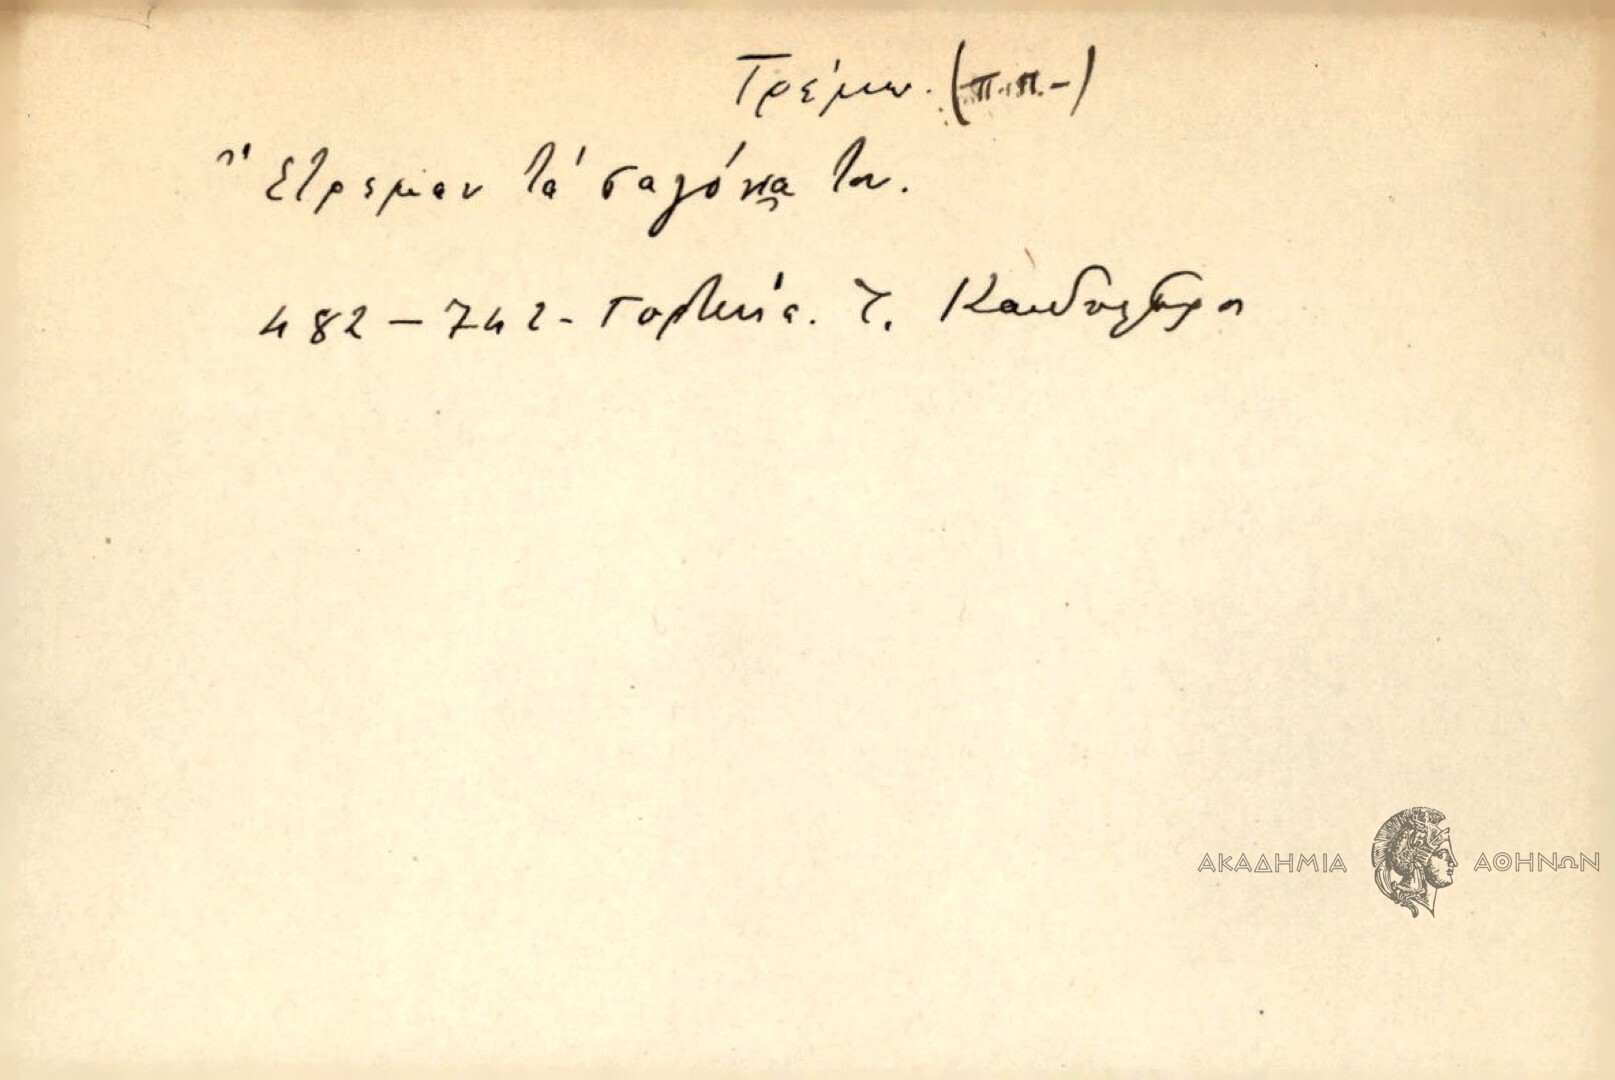 Τρέμω. (π.π. -)
Ἔτρεμαν τὰ σαγόνια του.
482 - 742 - Γορτυνία. Τ. Κανδηλώρου
ΑΚΑΔΗΜΙΑ ΑΘΗΝΩΝ